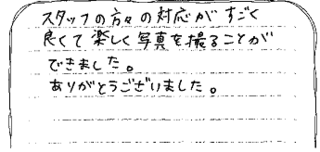 スタッフの方々の対応がすごく
良くて楽しく写真を撮ることが
できました。
ありがとうございました。